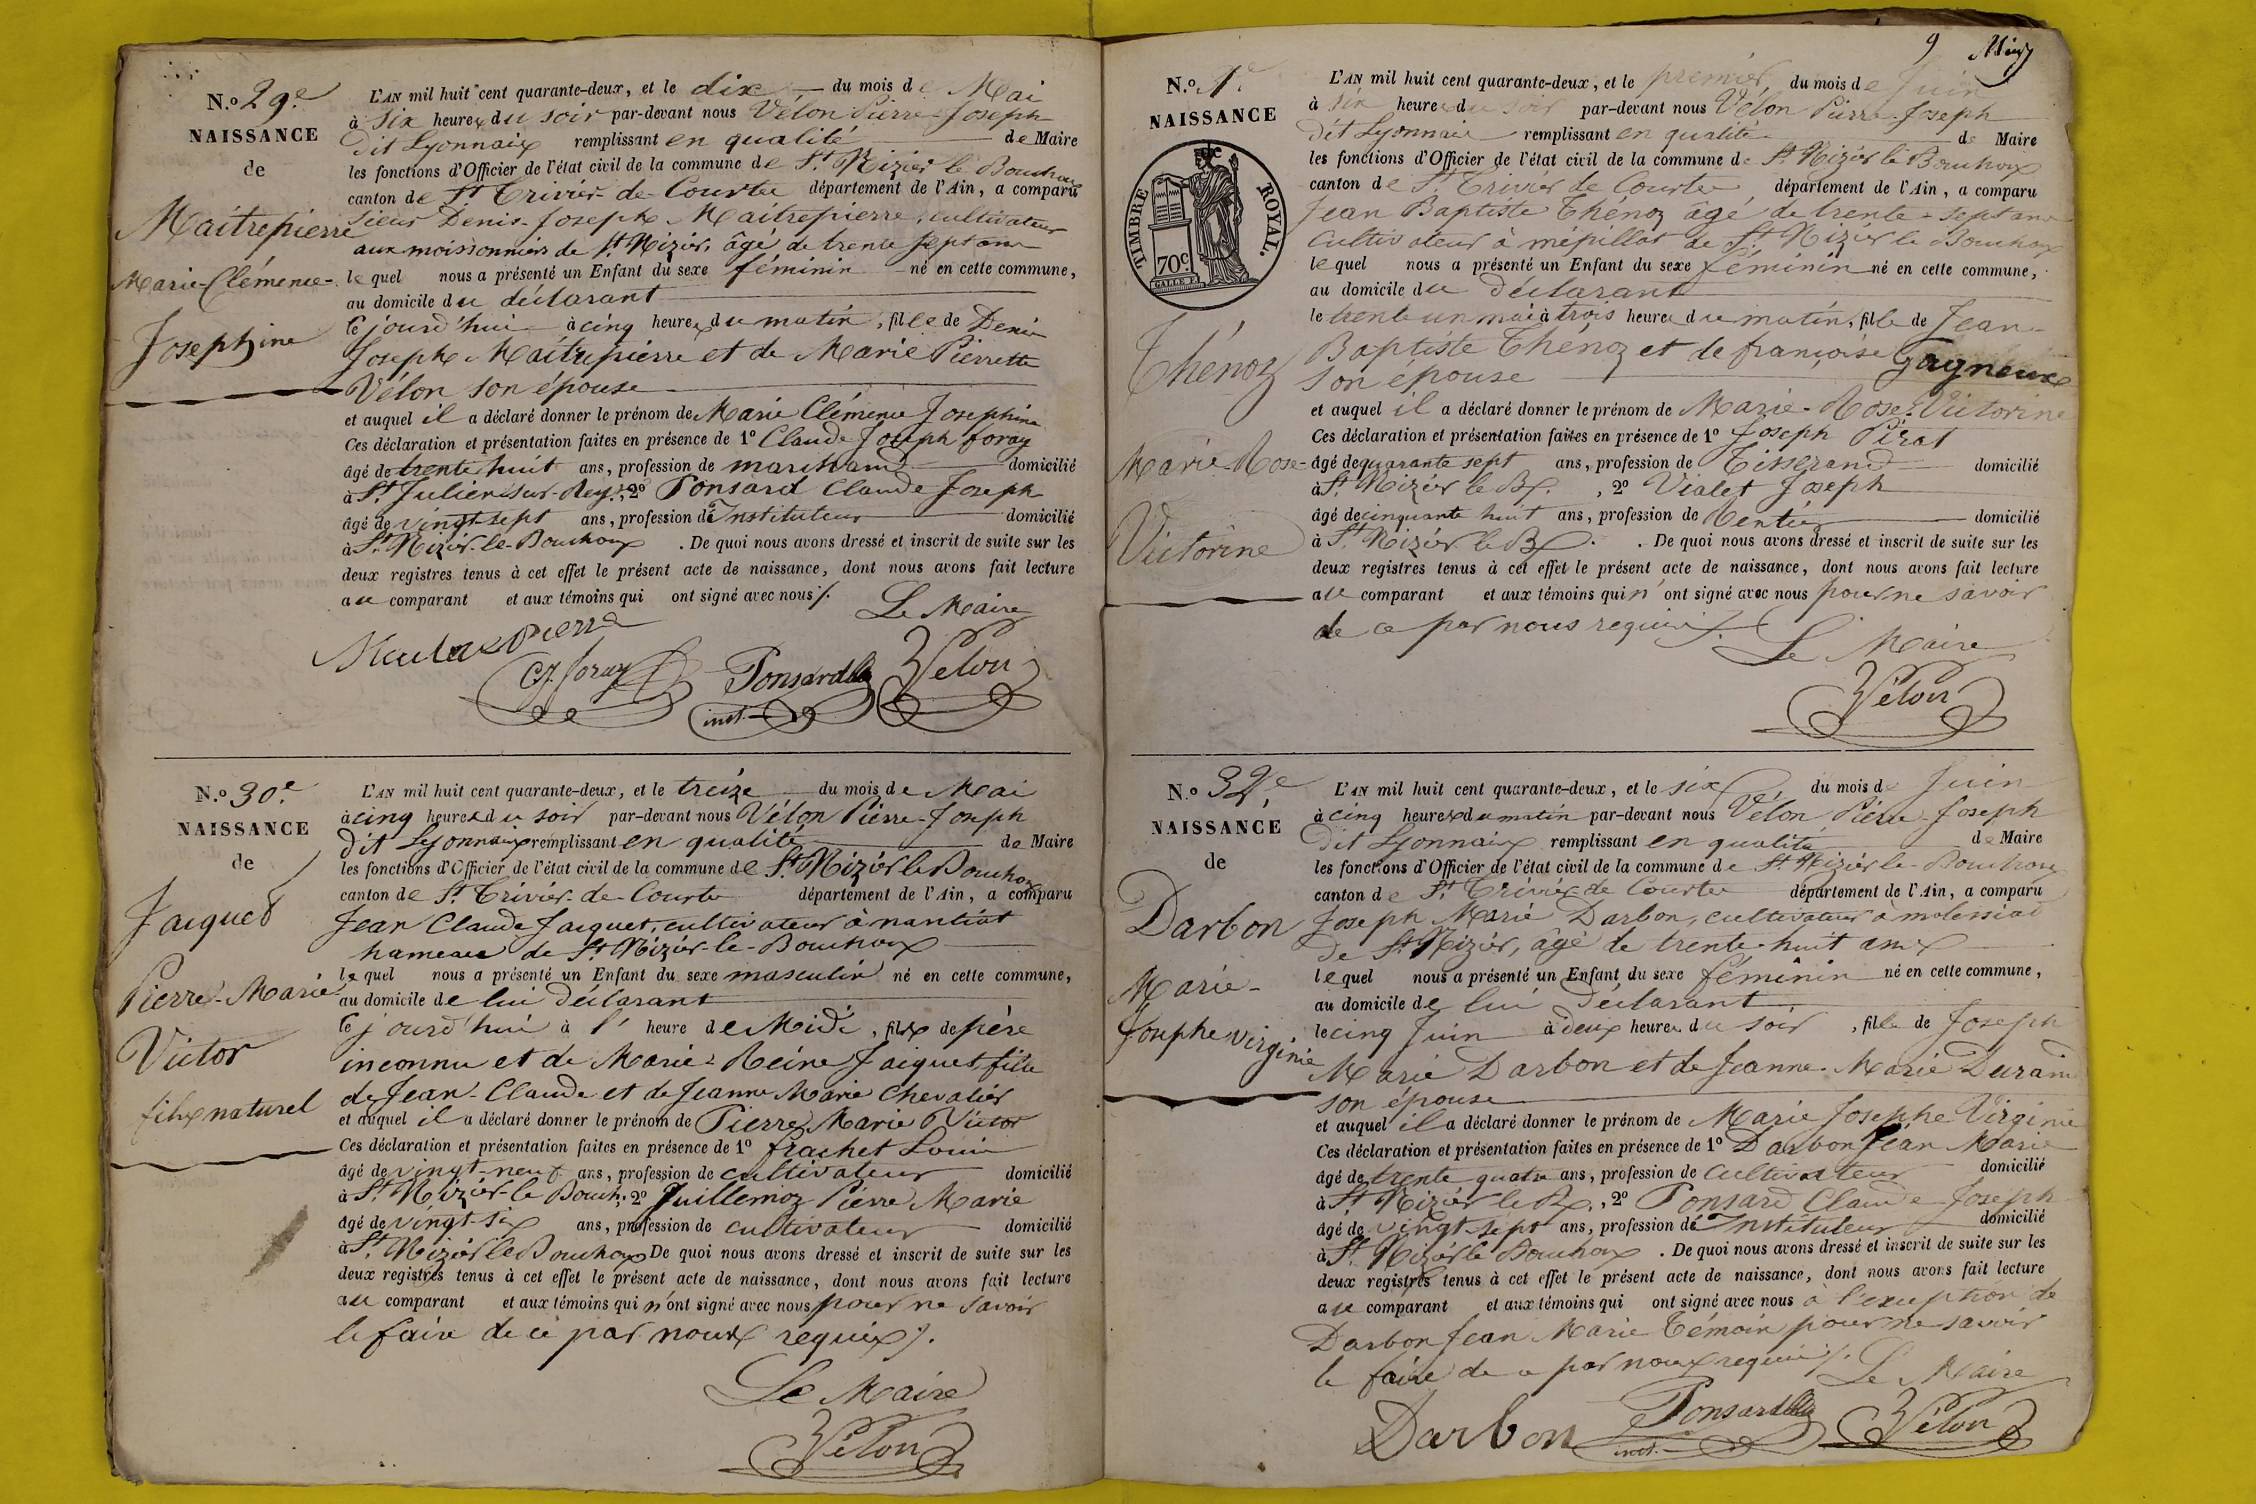 N.o 29e
NAISSANCE
de
Maitrepierre
Marie-Clémence-
Josephine
L'AN mil huit cent quarante-deux, et le dix du mois de Mai
à six heures du soir par-devant nous Vélon Pierre-Joseph
dit Lyonnaix remplissant en qualité de Maire
les fonctions d'Officier de l'état civil de la commune de St Nizier le Bouchoux
canton de St Trivier-de-Courtes département de l'Ain, a comparu
sieur Denis-Joseph Maitrepierre, cultivateur
aux moissonniers de St Nizier, âgé de trente sept ans
lequel nous a présenté un Enfant du sexe féminin né en cette commune,
au domicile du déclarant
cejourd'hui à cinq heures du matin, fille de Denis
Joseph Maitrepierre et de Marie Pierrette
Vélon son épouse
et auquel il a déclaré donner le prénom de Marie Clémence Josephine
Ces déclaration et présentation faites en présence de 1o Claude Joseph foray
âgé de trente huit ans, profession de marchand domicilié
à St Julien sur-Rey.; 2o Ponsard Claude Joseph
âgé de vingt-sept ans, profession d'Instituteur domicilié
à St Nizier-le-Bouchoux . De quoi nous avons dressé et inscrit de suite sur les
deux registres tenus à cet effet le présent acte de naissance, dont nous avons fait lecture
au comparant et aux témoins qui ont signé avec nous /.
Le Maire
C.J. foray Ponsard Vélon
inst.
N.o 30e
NAISSANCE
de
Jaiquet
Pierre-Marie
Victor
fils naturel
L'AN mil huit cent quarante-deux, et le treize du mois de Mai
à cinq heures du soir par-devant nous Vélon Pierre-Joseph
dit Lyonnaix remplissant en qualité de Maire
les fonctions d'Officier de l'état civil de la commune de St Nizier le Bouchoux
canton de St Trivier-de-Courtes département de l'Ain, a comparu
Jean Claude Jaiquet, cultivateur à nantiat
hameau de St Nizier-le-Bouchoux
lequel nous a présenté un Enfant du sexe masculin né en cette commune,
au domicile de lui déclarant
cejourd'hui à l'heure de Midi, fils de père
inconnu et de Marie-Reine Jaiquet, fille
de Jean-Claude et de Jeanne Marie Chevalier
et auquel il a déclaré donner le prénom de Pierre Marie Victor
Ces déclaration et présentation faites en présence de 1o frachet Louis
âgé de vingt-neuf ans, profession de cultivateur domicilié
à St Nizier-le Bouch; 2o Juillemoz Pierre Marie
âgé de vingt-six ans, profession de cultivateur domicilié
à St Nizier le Bouchoux De quoi nous avons dressé et inscrit de suite sur les
deux registres tenus à cet effet le présent acte de naissance, dont nous avons fait lecture
au comparant et aux témoins qui n'ont signé avec nous pour ne savoir
le faire de ce par nous requis /.
Le Maire
Vélon
9
N.o
NAISSANCE
de
TIMBRE ROYAL.
70c
Thénoz
Marie-Rose-
Victorine
L'AN mil huit cent quarante-deux, et le premier du mois de Juin
à six heures du soir par-devant nous Vélon Pierre-Joseph
dit Lyonnaix remplissant en qualité de Maire
les fonctions d'Officier de l'état civil de la commune de St Nizier le Bouchoux
canton de St Trivier de Courtes département de l'Ain, a comparu
Jean Baptiste Thénoz âgé de trente-sept ans
cultivateur à mépillat de St Nizier le Bouchoux
lequel nous a présenté un Enfant du sexe féminin né en cette commune,
au domicile du déclarant
le trente un mai à trois heures du matin, fille de Jean-
Baptiste Thénoz et de françoise Gagneux
son épouse
et auquel il a déclaré donner le prénom de Marie-Rose-Victorine
Ces déclaration et présentation faites en présence de 1o Joseph Pirat
âgé de quarante sept ans, profession de Tisserand domicilié
à St Nizier le Bx. , 2o Vialet Joseph
âgé de cinquante huit ans, profession de Rentier domicilié
à St Nizier le Bx. . De quoi nous avons dressé et inscrit de suite sur les
deux registres tenus à cet effet le présent acte de naissance, dont nous avons fait lecture
au comparant et aux témoins qui n'ont signé avec nous pour ne savoir
de ce par nous requis /.
Le Maire
Vélon
N.o 32e
NAISSANCE
de
Darbon
Marie-
Josephe Virginie
L'AN mil huit cent quarante-deux, et le six du mois de Juin
à cinq heures du matin par-devant nous Vélon Pierre-Joseph
dit Lyonnaix remplissant en qualité de Maire
les fonctions d'Officier de l'état civil de la commune de St Nizier le-Bouchoux
canton de St Trivier de Courtes département de l'Ain, a comparu
Joseph Marie Darbon, cultivateur à molissiat
de St Nizier, âgé de trente-huit ans
lequel nous a présenté un Enfant du sexe féminin né en cette commune,
au domicile de lui déclarant
le cinq Juin à deux heures du soir, fille de Joseph
Marie Darbon et de Jeanne-Marie Durand
son épouse
et auquel il a déclaré donner le prénom de Marie Josephe Virginie
Ces déclaration et présentation faites en présence de 1o Darbon Jean Marie
âgé de trente quatre ans, profession de cultivateur domicilié
à St Nizier le Bx., 2o Ponsard Claude Joseph
âgé de vingt-sept ans, profession d'Instituteur domicilié
à St Nizier le Bouchoux . De quoi nous avons dressé et inscrit de suite sur les
deux registres tenus à cet effet le présent acte de naissance, dont nous avons fait lecture
au comparant et aux témoins qui ont signé avec nous à l'exception de
Darbon Jean Marie Témoin pour ne savoir
le faire de ce par nous requis /. Le Maire
Darbon Ponsard Vélon
inst.